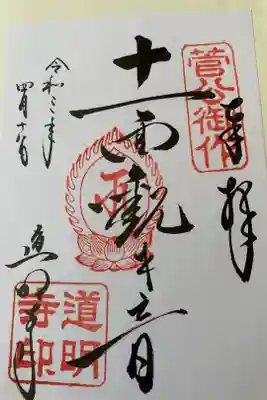 奉拝
菅公御作
十一面観世音
道明寺
道明寺印
令和三年
四月十八日